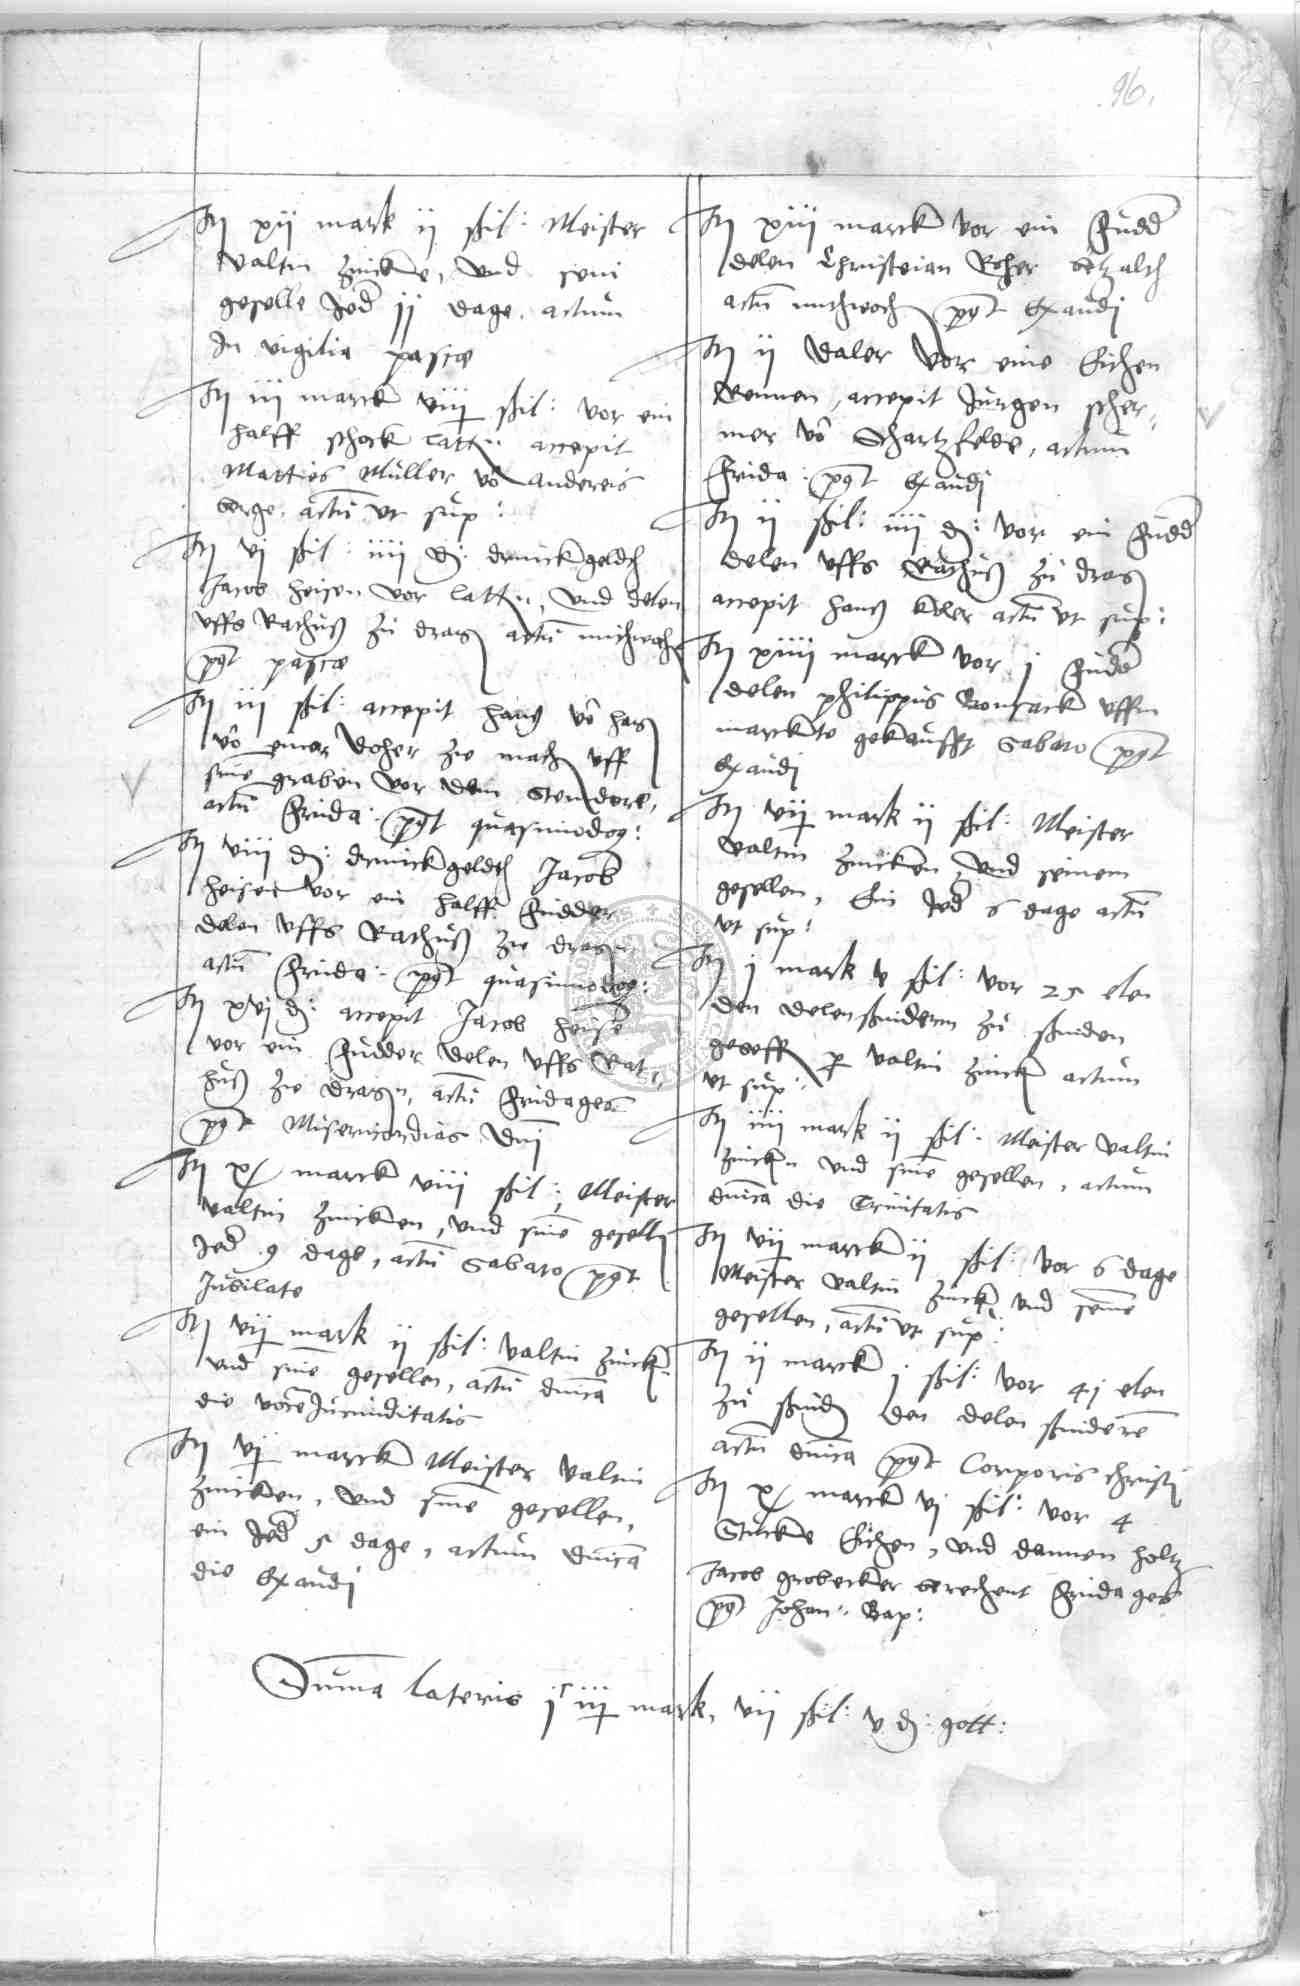 96.
It xij mark ij ßil: Meister
Valtin Zincken, vnd sein
geselle Jed jj dage, actum
In vigilia pascæ
It iij marck viij ßil: vor ein
halff schock latt accepit
Matties Müller vō Andereis
berge, actū vt sup:
It vj ßil: iiij d: drinckgeldh
Jacob heisen vor latten, vnd delen
vffs Rathuß zu drag actū mithwoch
pqt pascæ
It iij ßil: accepit hanß vō
vō einer Doher zu mach vff
sine graben vor dem Stendore,
actū Frida: pqt quasimodog:
It viij d: drinckgeldh Jacob
heisen vor ein halff fudder
delen vffs Rathuß zu dragen
actū Frida: pqt quasimodog:
It xvj d: accepit Jacob heise
vor ein fudder delen vffs Rat-
huß zu dragn, actū Fridages
pqt Misericordias Dnj
It x marck viij ßil:, Meister
Valtin Zincken, vnd sine gesell
Jed 9 dage, actū Sabato pqt
Jubilate
It vij mark ij ßil: Valtin Zinckn
vnd sine gesellen, actū dnica
die vocē Jucunditatis
It vj marck Meister Valtin
Zincken, vnd sine gesellen,
ein Jed 5 dage, actum dnica
die Exaudj
It xiij marck vor ein fudd
delen Christian Roher betzalth
actū mithwoch pqt Exaudj
It ij daler vor eine Eichen
Rennen, accepit Jurgen scher-
mer vō Schartzfelde, actum
Frida: pqt Exaudj
It ij ßil: iiij d: vor ein fudd
delen vffs Rathuß zu drag
accepit hanß actū vt sup:
It xiiij marck vor j fudd
delen philippus vffm
marckte gekaufft Sabato pqt
Exaudj
It vij mark ij ßil: Meister
Valtin Zincken, vnd seinem
gesellen, Ein Jed 6 dage actū
vt sup:
It j mark v ßil: vor 25 elen
den delenßnidern zu ßniden
geoff p Valtin Zinck actum
vt sup:
It iiij mark ij ßil: Meister Valtin
Zinckn vnd sine gesellen, actum
dnica die Trinitatis
It vij marck ij ßil: vor 6 dage
Meister Valtin Zinck vnd seine
gesellen, actū vt sup:
It ij marck j ßil: vor 41 elen
zu ßnid den delen ßnidere
actū dnica pqt Corporis christj
It x marck vj ßil: vor 4
Stucke Eichen, vnd dannen holtz
Jacob grobecker berechent Fridages
pqt Johan: Bap:
Suma lateris jc iij mark, vij ßil: v d: gott: